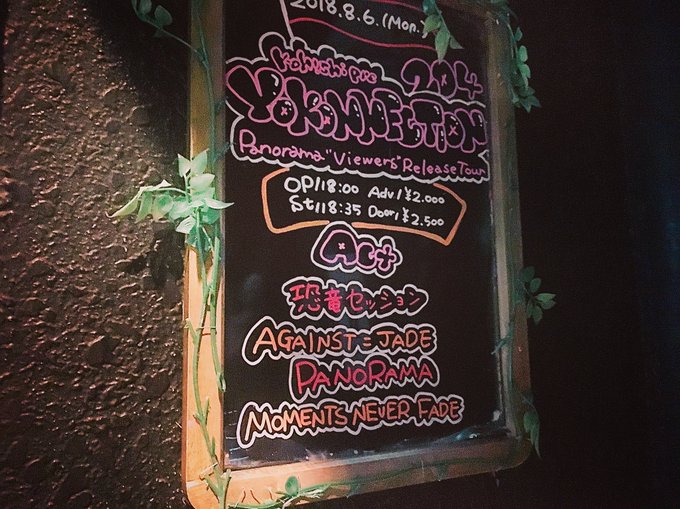 2018.8.6.(Mon.)
Kohushi pre
YOKONNECTION 204
Panorama "Viewers" Release Tour
OP/18:00 Adv/¥2.000
St/18:35 Door/¥2.500
Act
恐竜セッション
AGAINST=JADE
PANORAMA
MOMENTS NEVER FADE